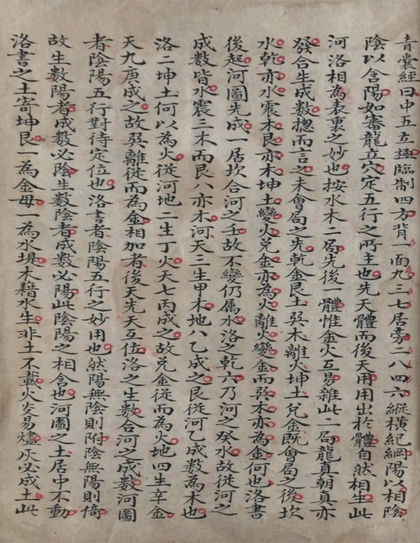 青囊經曰中五立極臨制四方背一面九三七居旁二八四六縱橫紀綱陽以相陰
陰以含陽如審龍立穴定五行之所主也先天體而後天用用出於體自然相生此
河洛相為表裏之妙也按水木二局先後一體惟金火互易雜此一局龍真朝真亦
發合生成數揔而言之未會局之先乾金艮土巽木離火坤土兌金既會局之後坎
水乾亦水震木艮亦木坤土變火兌金亦為火離火變金而巽木亦為金何也洛書
後起河圖先成一居坎合河之壬故不變仍屬水洛之乾六乃河之癸水故從河之
成數皆水震三木而艮八亦木河天三生甲木地八乙成之艮從河乙成數為木也
洛二坤土何以為火從河地二生丁火天七丙成之故兌金從而為火地四生辛金
天九庚成之故巽離從而為金相加者後天先天五位洛之生數合河之成數河圖
者陰陽五行對待定位也洛書者陰陽五行之妙用也然陽無陰則附陰無陽則倚
故生數陽者成數必陰生數陰者成數必陽此陰陽之相含也河圖之土居中不動
洛書之土寄坤艮一為金母一為水埧木藉水生非土不載火炎易燼灰必成土此